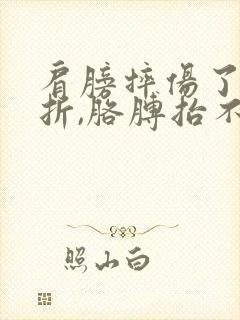 肩膀摔傷了
折,胳膊抬不
照山白